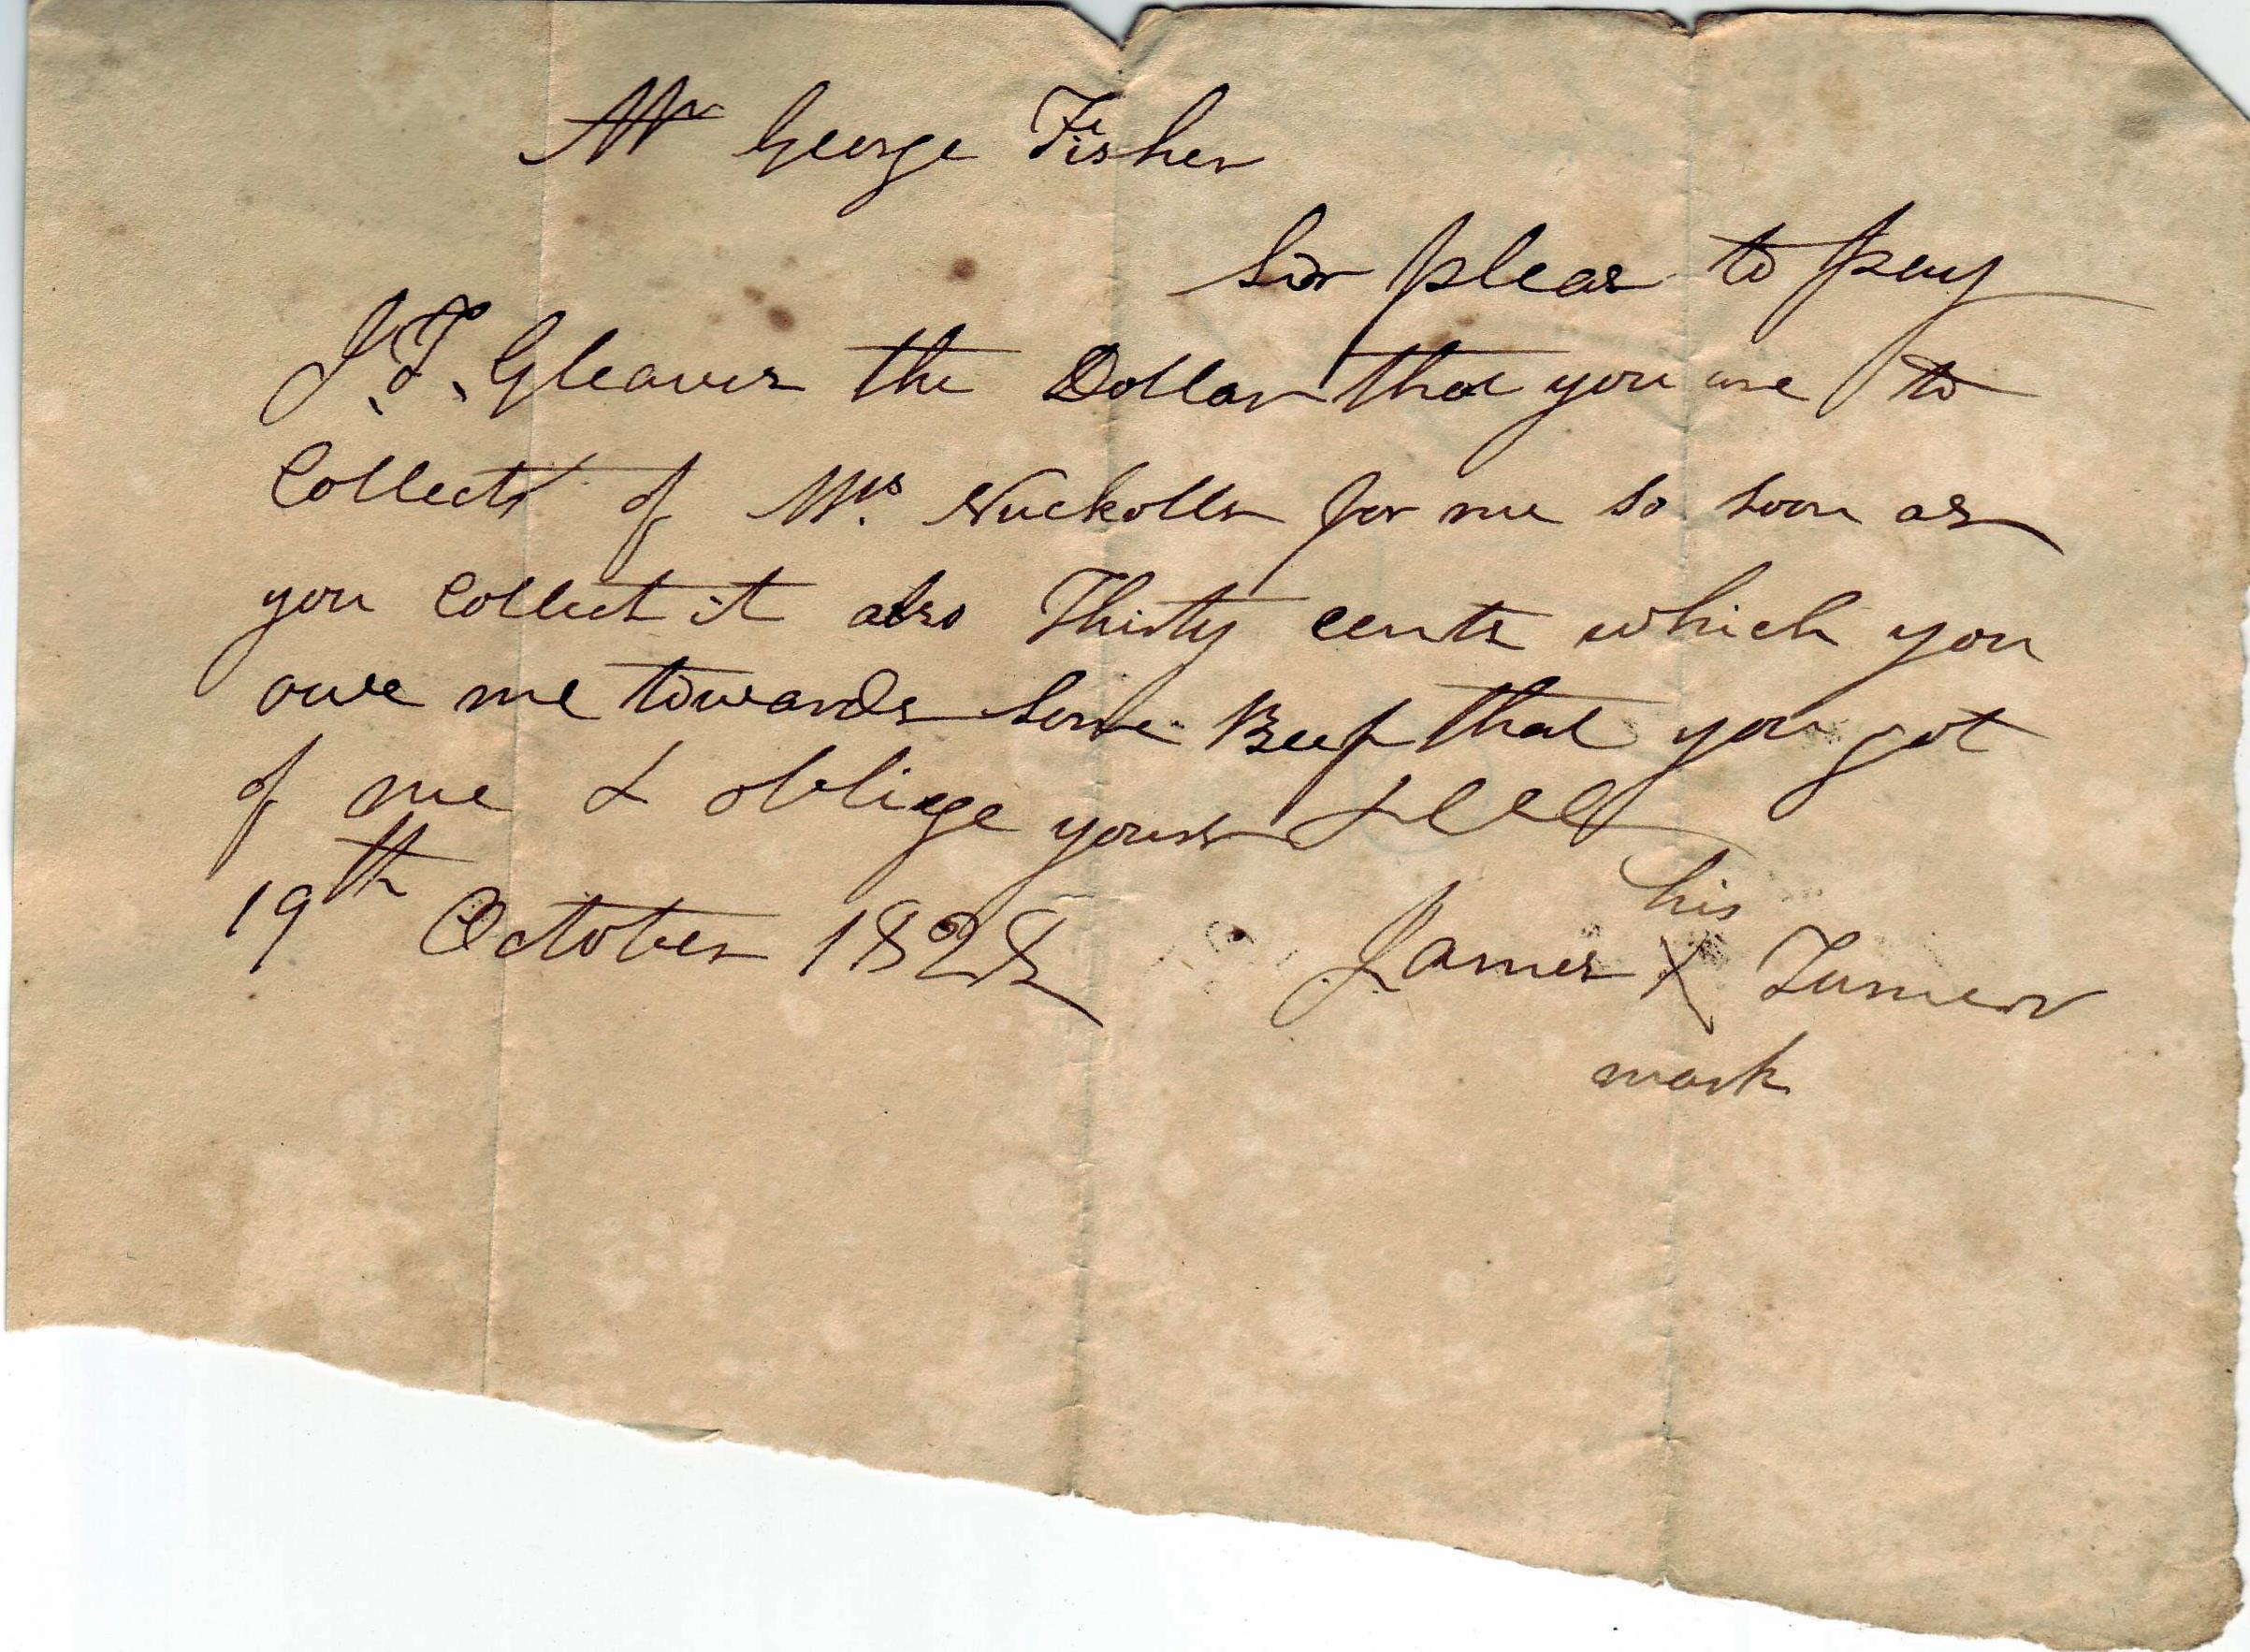 Mr George Fisher
Sir pleas to pay
J. T. Gleaves the Dollar that you are to
Collect of Mrs. Nuckolls for me so soon as
you Collect it also Thirty cents which you
owe me towards some Beef that you got
of me & oblige yours &c
19th October 1828
his
James X Turner
mark